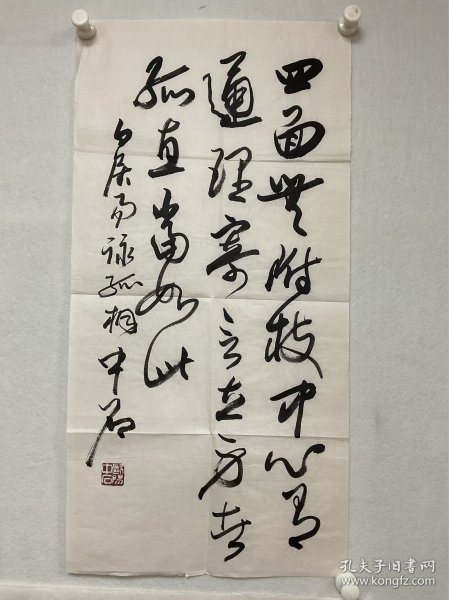 四面無附枝中心有
通理寄言立身者
孤直當如此
白居易詠孤桐 中石
歐陽中石
孔夫子旧书网
www.kongfz.com